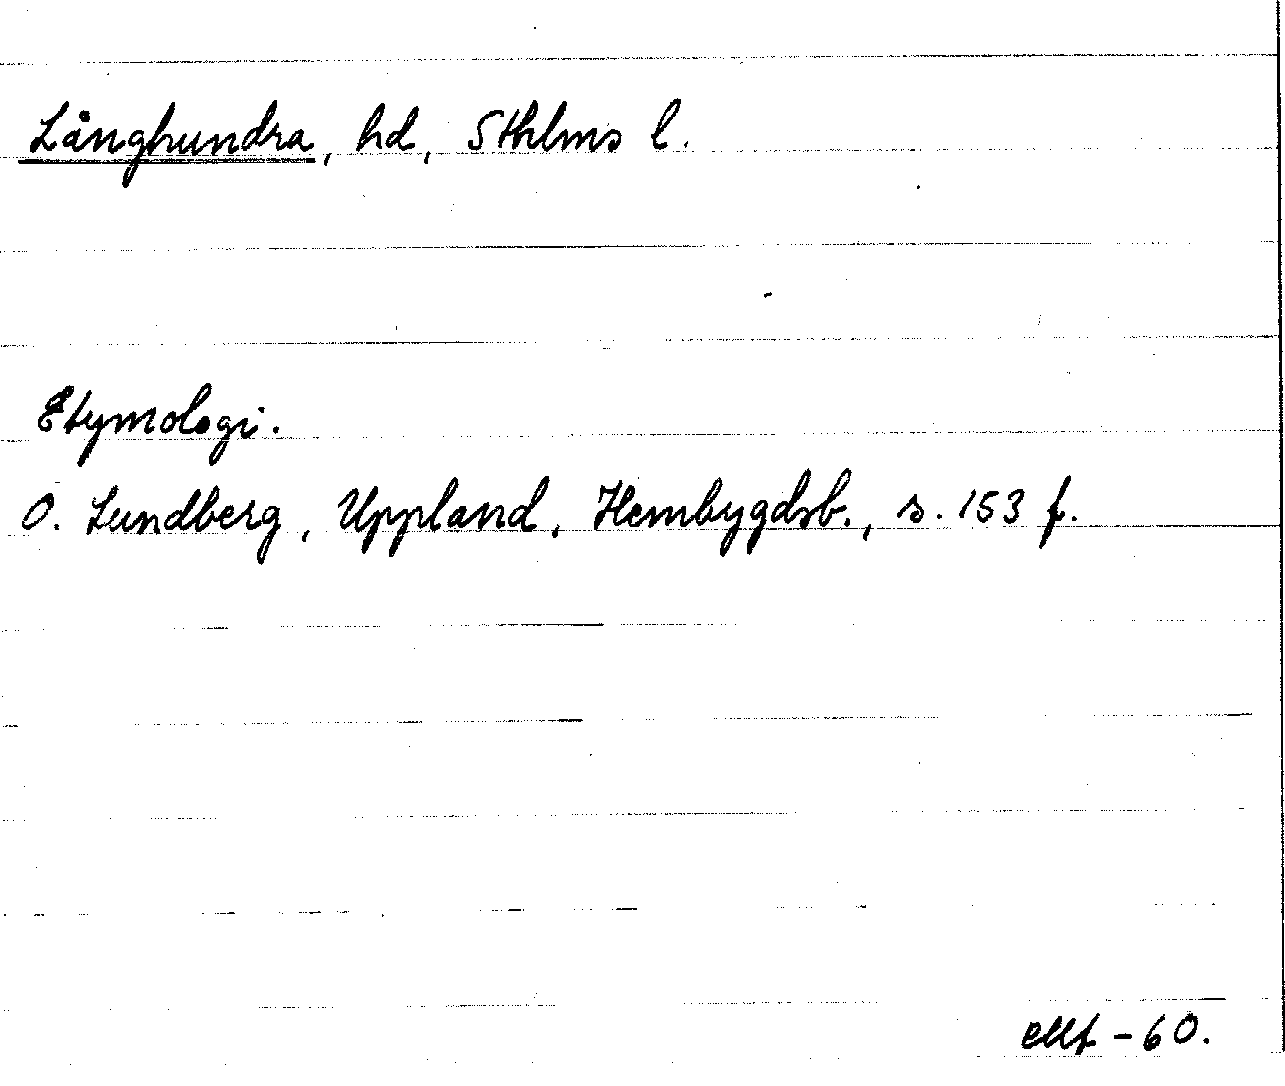 Långhundra, hd, Sthlms l.
Etymologi.
O. Lundberg, Uppland, Hembygdsb., s. 153 f.
-60.